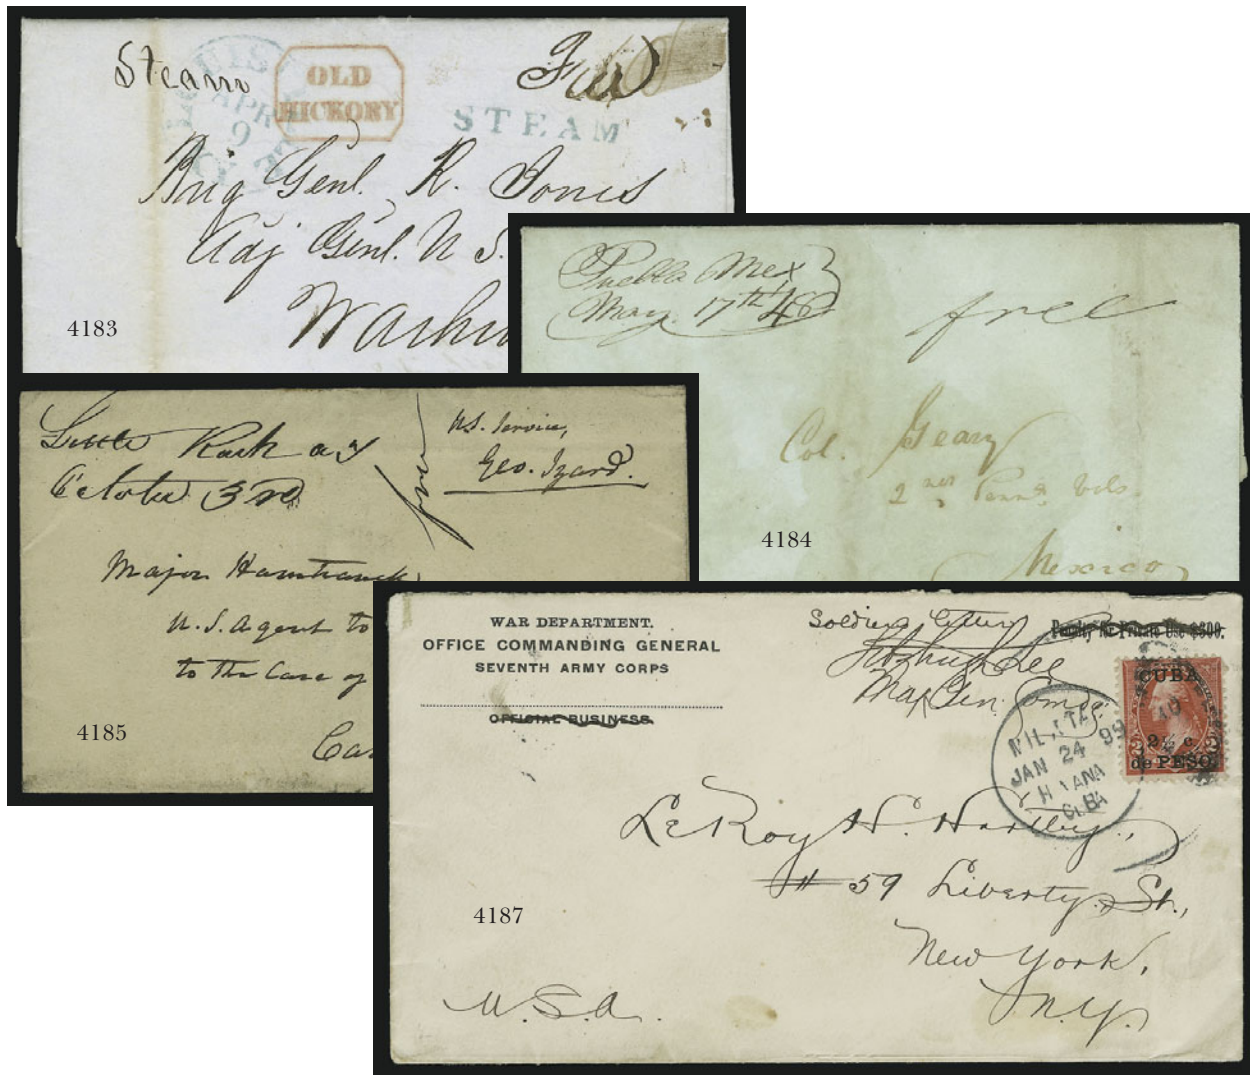 Steam
Free
LOUISVILLE
APR
9
KY
OLD
HICKORY
STEAM
Brig Genl. R. Jones
Adj Genl. U S.
Washin
4183
Puebla Mex
May 17th 48
free
Col. Geary
2nd Penna Vols.
Mexico
4184
Little Rock a.T
October 3rd
free
U.S. Service,
Geo. Izard.
Major Hamtramck,
U.S. Agent to
to the Care of
4185
WAR DEPARTMENT.
OFFICE COMMANDING GENERAL
SEVENTH ARMY CORPS
OFFICIAL BUSINESS.
Soldiers Letter
Penalty for Private Use $300.
Fitzhugh Lee
Maj Gen. Comdg.
CUBA
2½ c
de PESO
MILITARY
JAN 24 99
HAVANA
CUBA
LeRoy W. Hartley.,
# 59 Liberty St.,
New York,
N.Y.
U.S.A.
4187